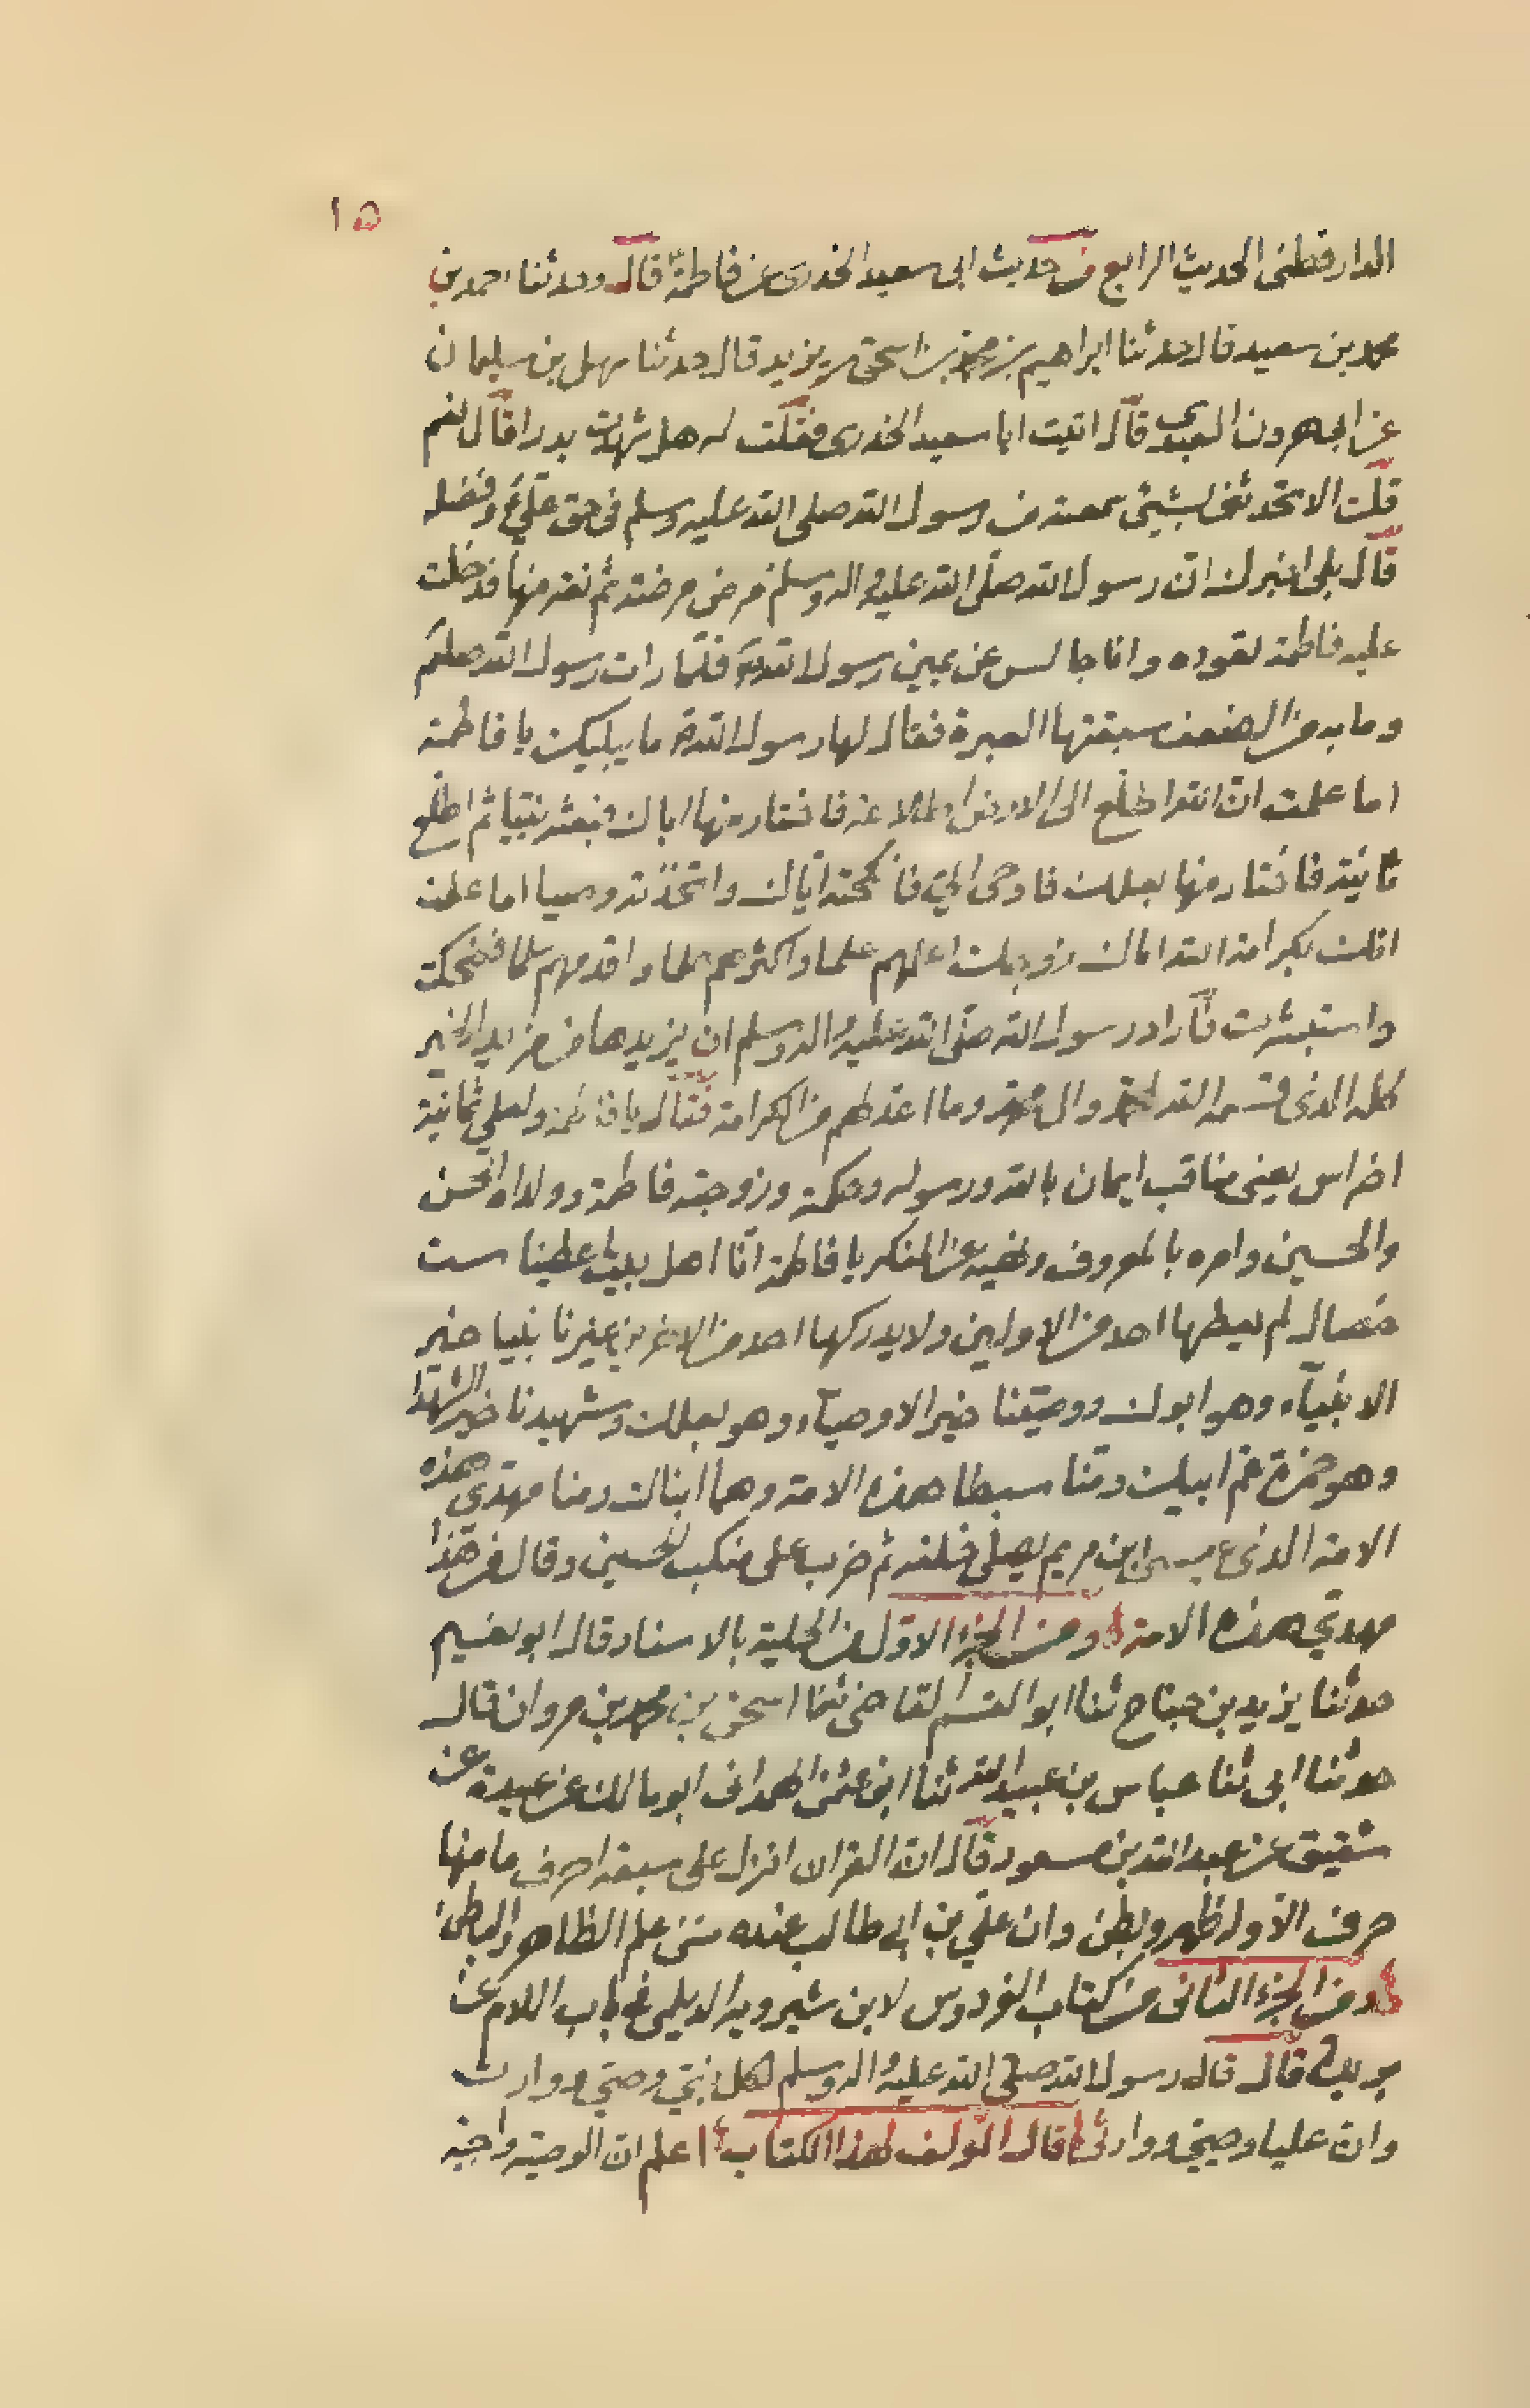 ١٥
الدارقطنى الحديث الرابع من حديث ابى سعيد الخدرى عن فاطمة قال وحدثنا احمد بن
محمد بن سعيد قال حدثنا ابراهيم بن محمد بن اسحق بن يزيد قال حدثنا سهل بن سليمان
عن ابى هرون العبدى قال اتيت ابا سعيد الخدرى فقلت له هل شهدت بدرا فقال نعم
قلت الا تحدثنى بشيئ سمعته من رسول الله صلى الله عليه وسلم فى حق على ع وفضله
قال بلى اخبرك ان رسول الله صلى الله عليه واله وسلم مرض مرضته ثم نقه منها فدخلت
عليه فاطمة تعوده وانا جالس عن يمين رسول الله ص فلما رات رسول الله صلعم
وما به من الضعف سبقتها العبرة فقال لها رسول الله ص ما يبكيك يا فاطمة
اما علمت ان الله اطلع الى الارض اطلاعة فاختار منها اباك فبعثه نبيا ثم اطلع
ثانية فاختار منها بعلك فاوحى الى فانكحته اياك واتخذته وصيا اما علمت
انك بكرامة الله اياك زوجك اعلمهم علما واكثرهم حلما واقدمهم سلما فضحكت
واستبشرت فاراد رسول الله صلى الله عليه واله وسلم ان يزيدها من مزيد الخير
كله الذى قسمه الله لمحمد وال محمد وما اعد لهم من الكرامة فقال يا فاطمة ولعلى ثمانية
اضراس يعنى مناقب ايمان بالله ورسوله وحكمة وزوجته فاطمة وولداه الحسن
والحسين وامره بالمعروف ونهيه عن المنكر يا فاطمة انا اهل بيت اعطينا ست
خصال لم يعطها احد من الاولين ولا يدركها احد من الاخرين غيرنا نبينا خير
الانبياء وهو ابوك ووصينا خير الاوصياء وهو بعلك وشهيدنا خير الشهدا
وهو حمزة عم ابيك ومنا سبطا هذه الامة وهما ابناك ومنا مهدى هذه
الامة الذى عيسى ابن مريم يصلى خلفه ثم ضرب على منكب الحسين وقال من هذا
مهدى هذه الامة ومن الجزء الاول من الحلية بالاسناد قال ابو نعيم
حدثنا يزيد بن جناح ثنا ابو القسم القاضى ثنا اسحق بن محمد بن مروان قال
حدثنا ابى ثنا عباس بن عبيد الله ثنا ابن عثمن الهمدانى ابو مالك عن عبيدة عن
شقيق عن عبد الله بن مسعود قال ان القران انزل على سبعة احرف ما منها
حرف الا وله ظهر وبطن وان على بن ابى طالب عنده منه علم الظاهر والباطن
ومن الجزء الثانى من كتاب الفردوس لابن شيرويه الديلمى فى باب اللام عن
بريدة قال قال رسول الله صلى الله عليه واله وسلم لكل نبى وصى ووارث
وان عليا وصيى ووارثى قال المؤلف لهذا الكتاب اعلم ان الوصية واجبة